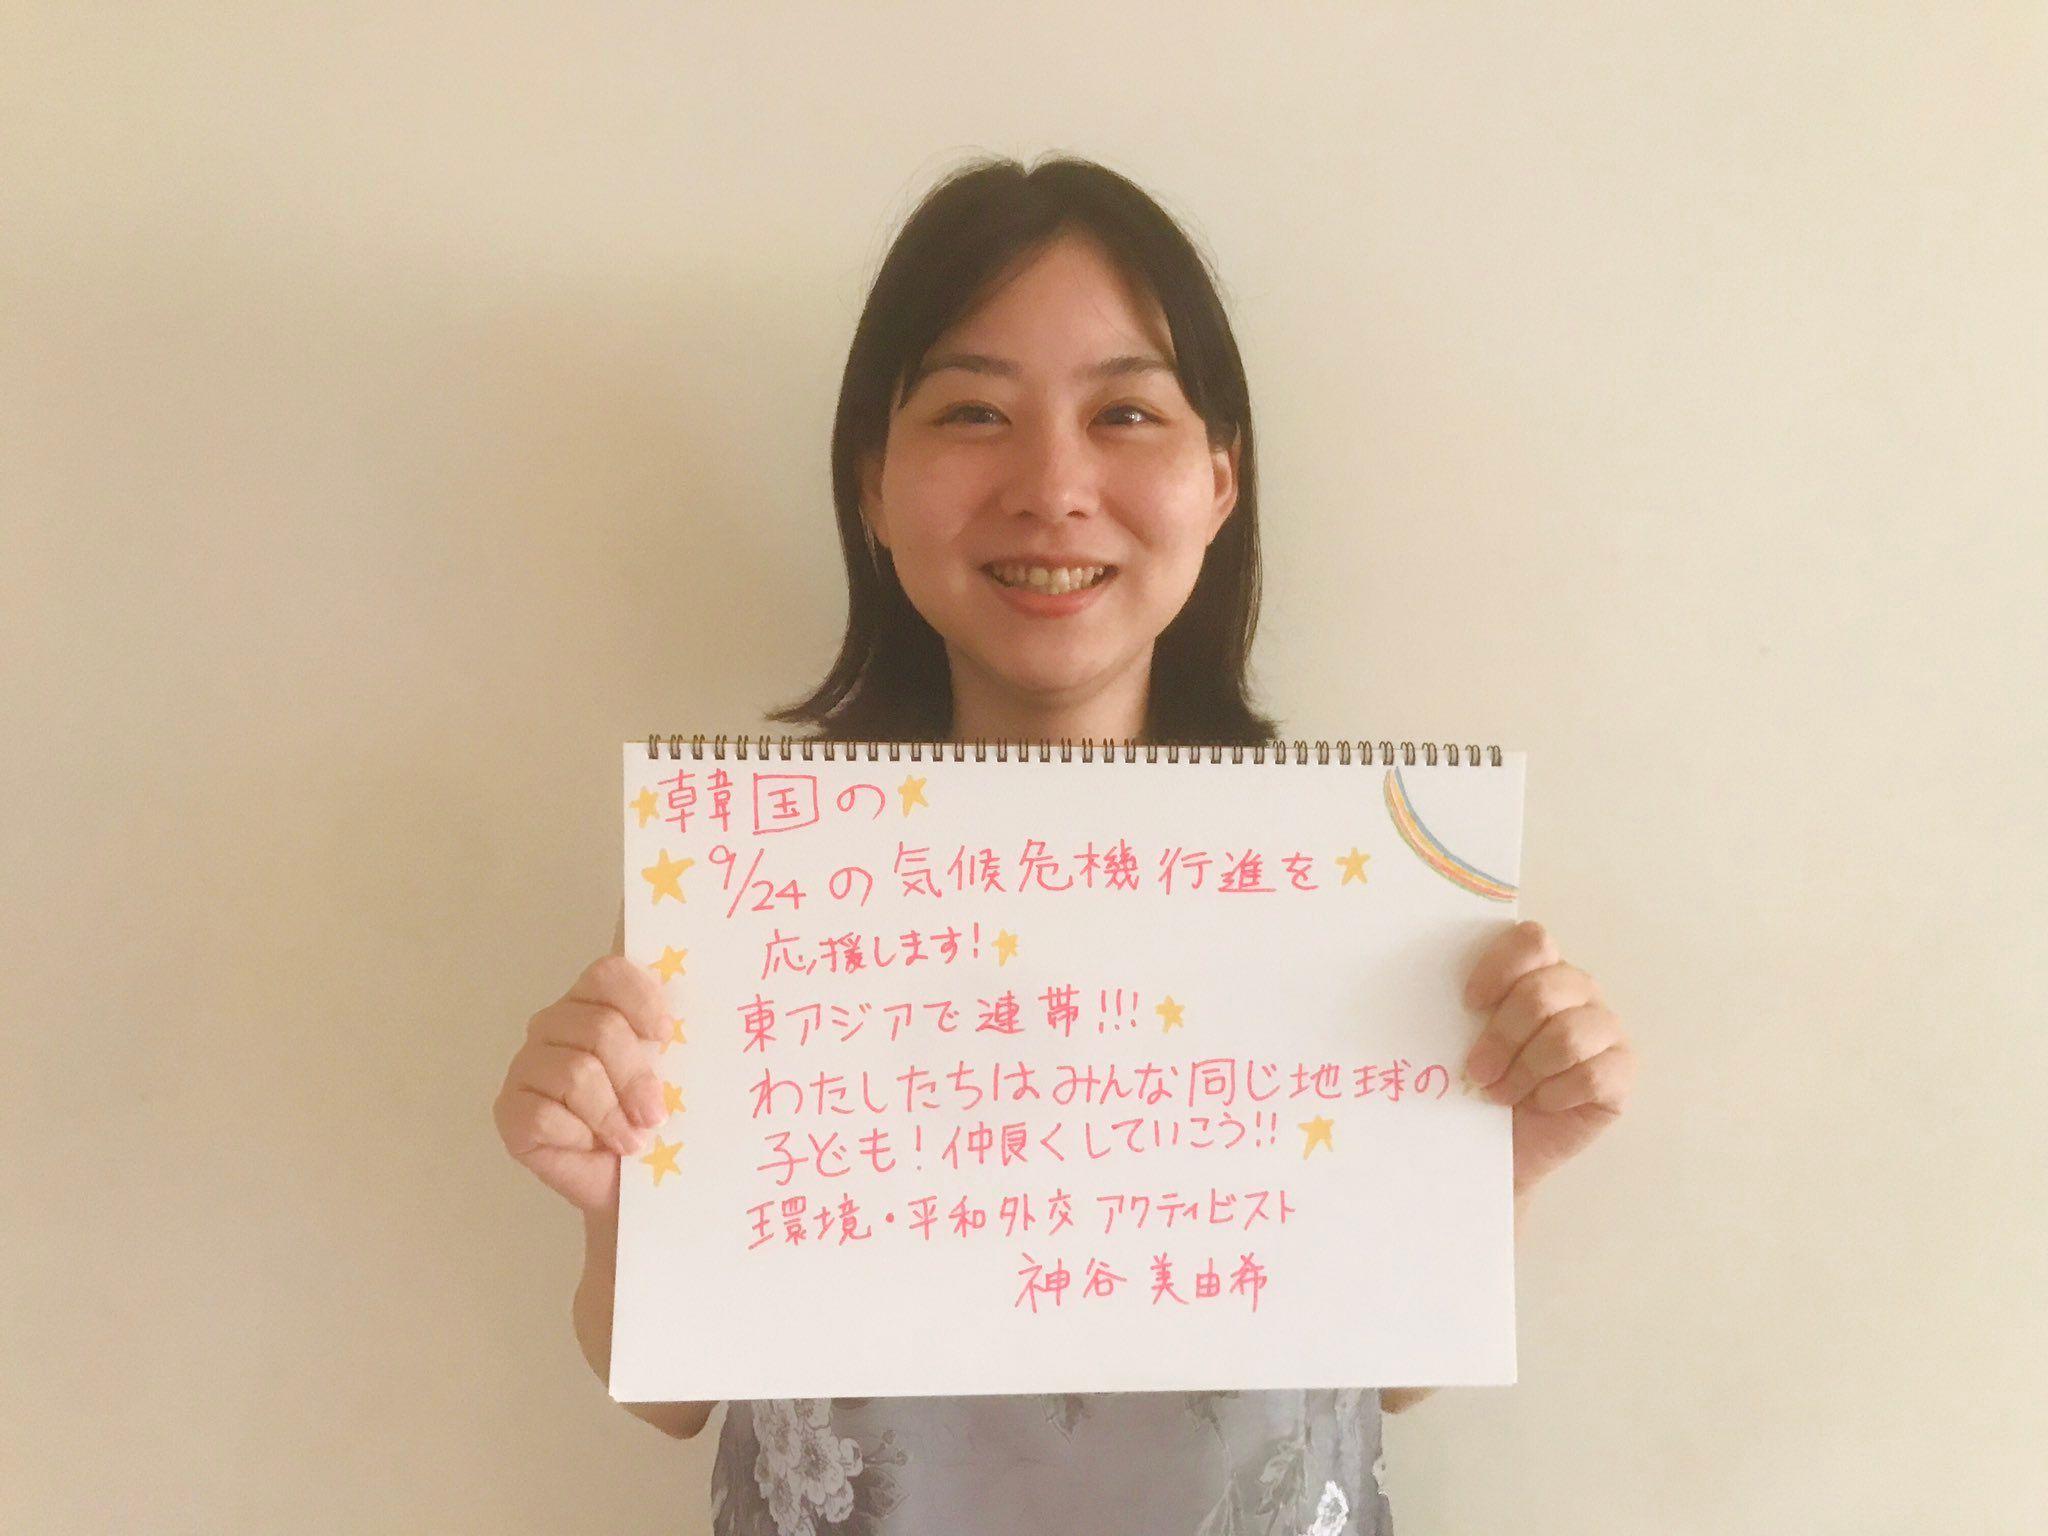 韓国の
9/24の気候危機行進を
応援します!
東アジアで連帯!!!
わたしたちはみんな同じ地球の
子ども!仲良くしていこう!!
環境・平和外交アクティビスト
神谷美由希